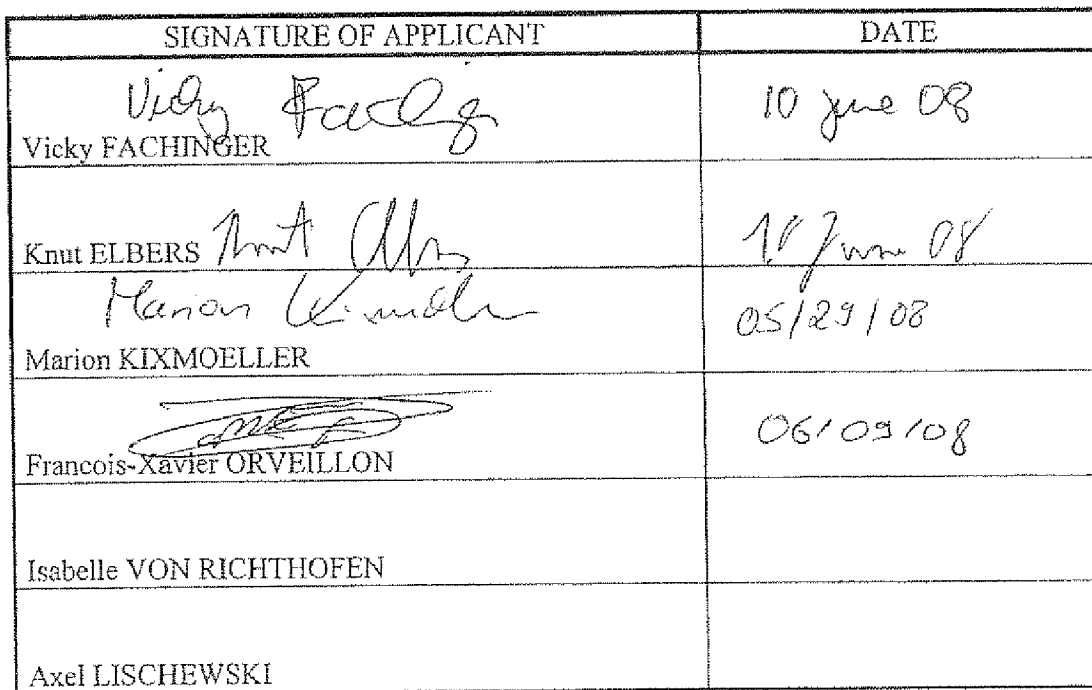 SIGNATURE OF APPLICANT DATE
Vicky Fachinger 10 june 08
Vicky FACHINGER
Knut ELBERS Knut Elbers 10 June 08
Marion Kixmoeller 05/29/08
Marion KIXMOELLER
06/09/08
Francois-Xavier ORVEILLON
Isabelle VON RICHTHOFEN
Axel LISCHEWSKI